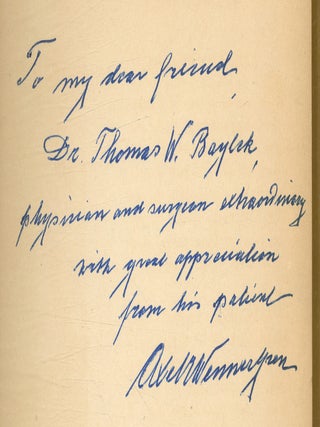 To my dear friend
Dr. Thomas W. Baylek,
physician and surgeon extraordinary
with great appreciation
from his patient
Axel Wennergren